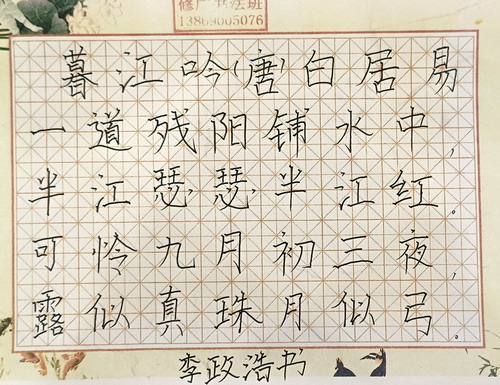 修广书法班
13869005076
暮江吟(唐)白居易
一道残阳铺水中,
半江瑟瑟半江红。
可怜九月初三夜,
露似真珠月似弓。
李政浩书